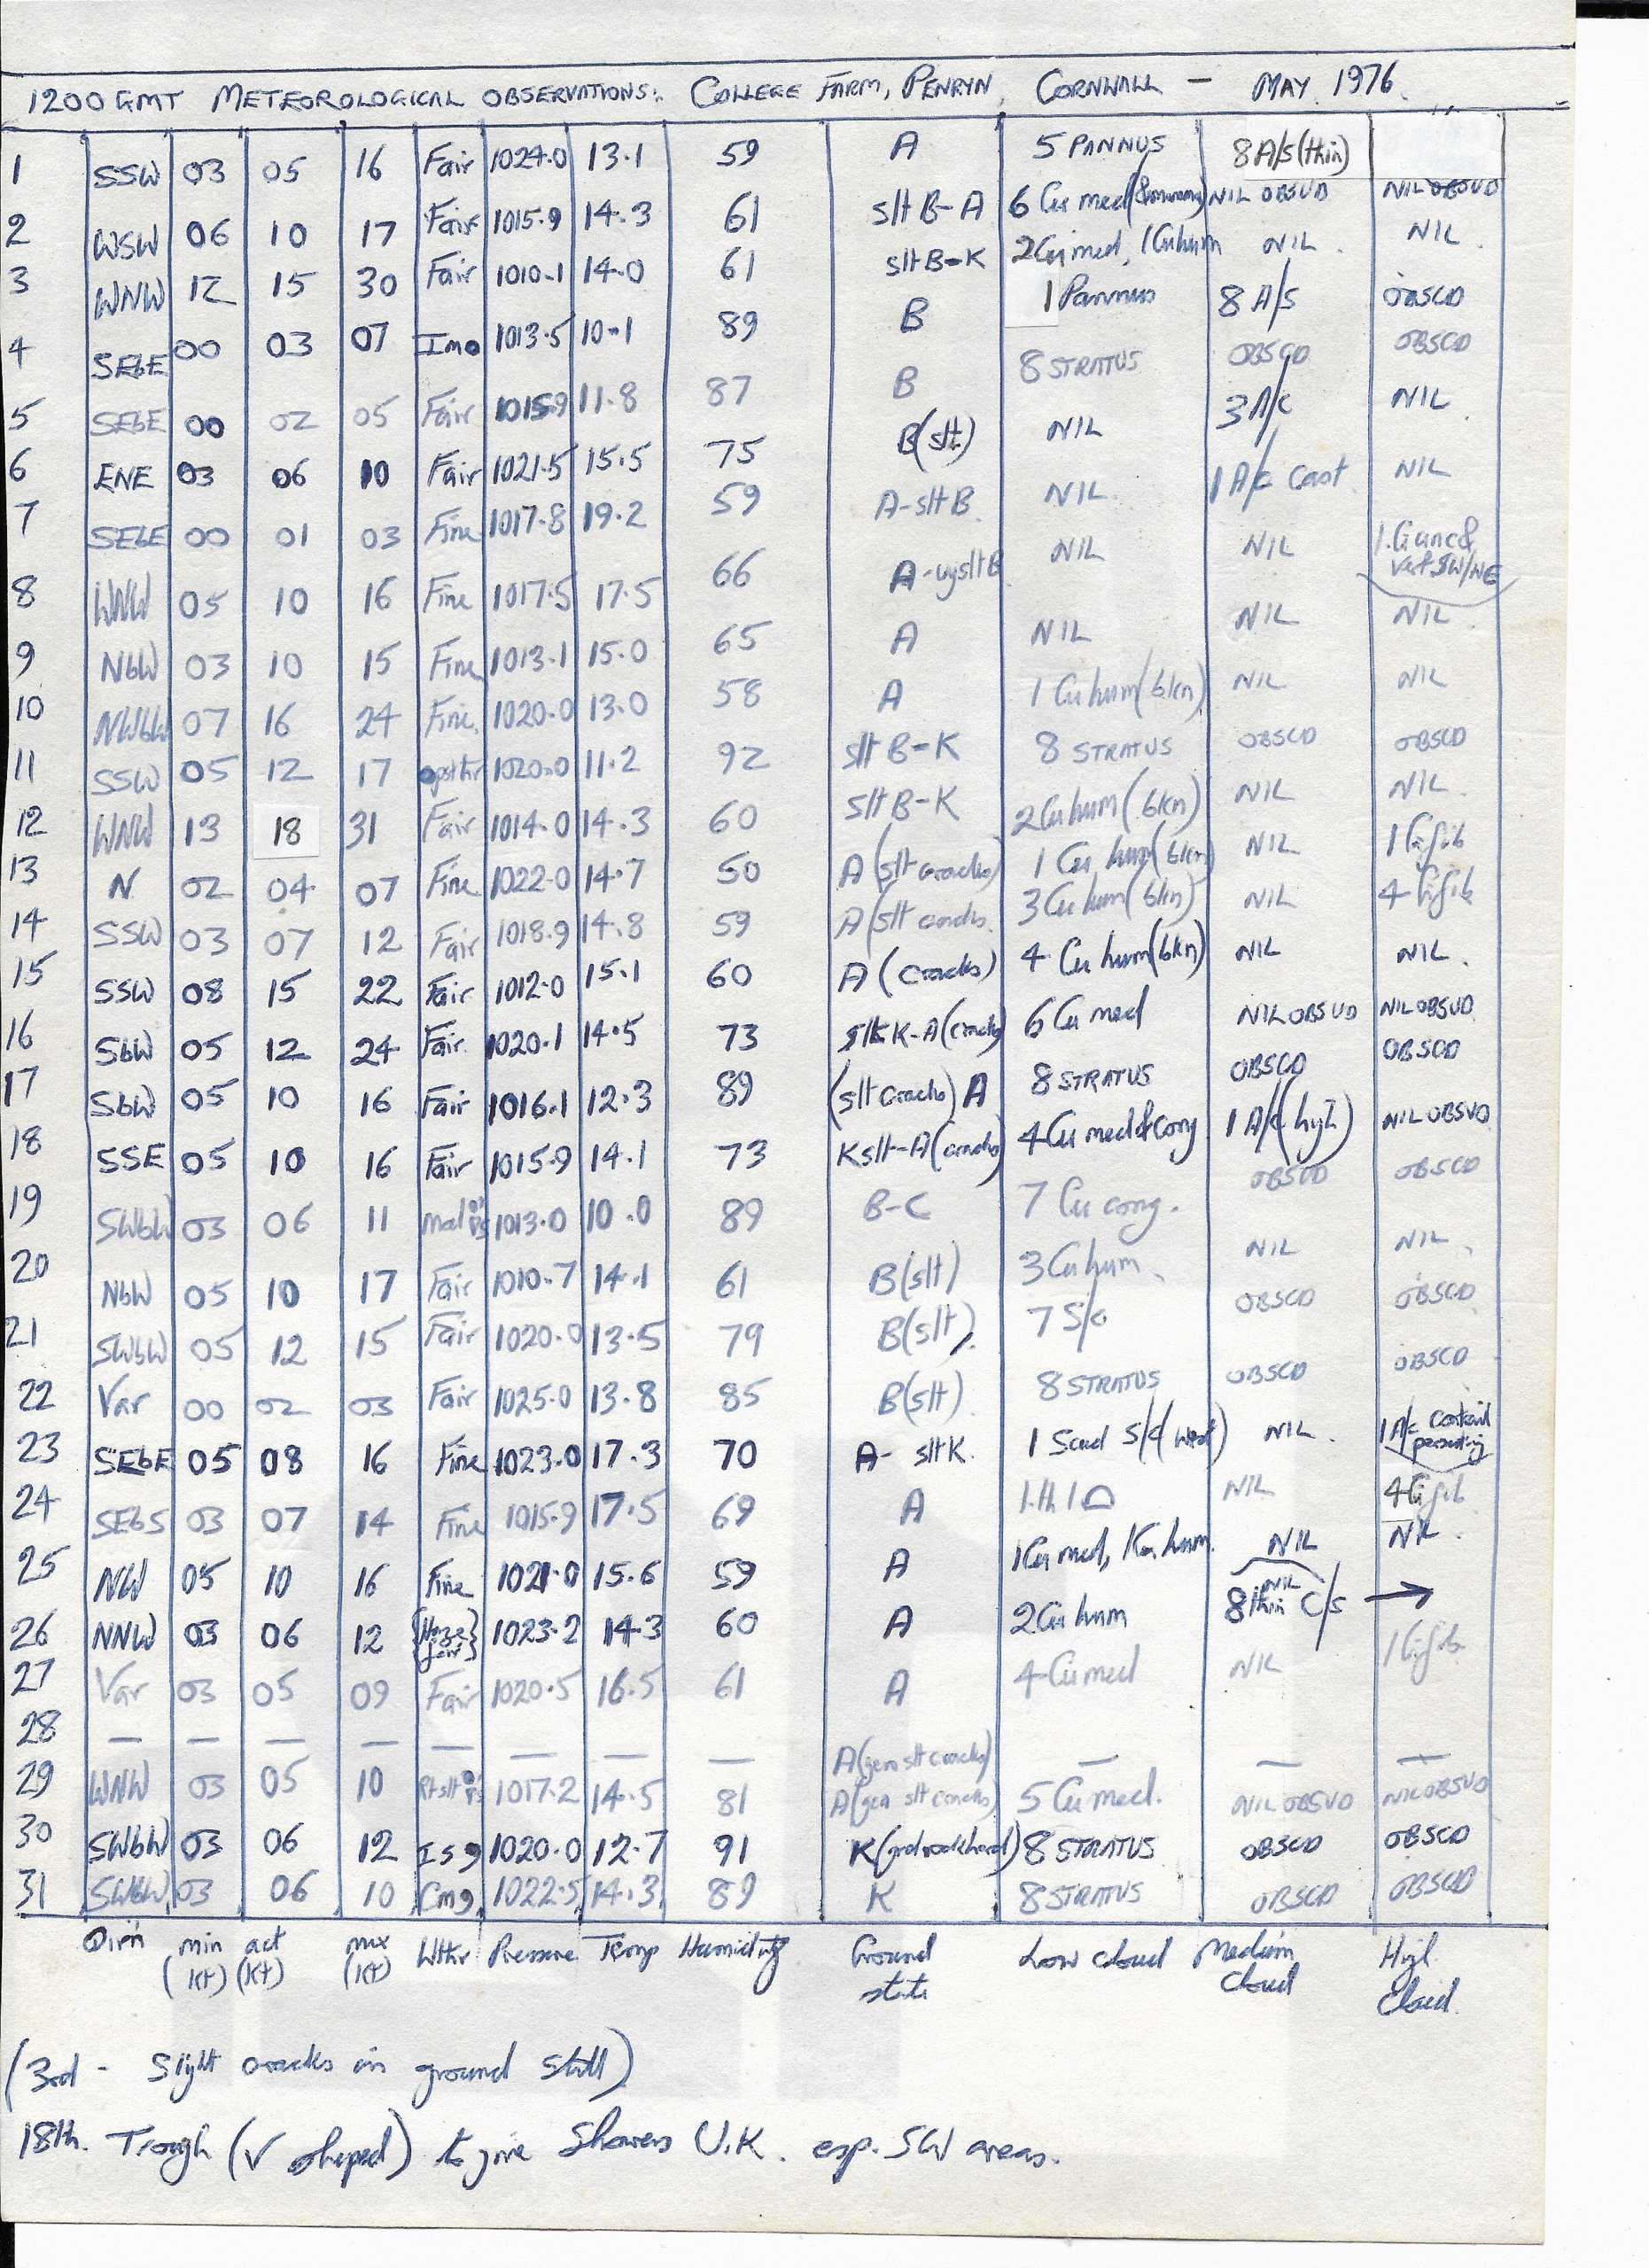 1200 GMT METEOROLOGICAL OBSERVATIONS:. COLLEGE FARM, PENRYN, CORNWALL — MAY. 1976.
1 SSW 03 05 16 Fair 1024.0 13.1 59 A 5 PANNUS 8 A/s (thin)
2 WSW 06 10 17 Fair 1015.9 14.3 61 slt B-A 6 Cu med NIL OBSVD NIL OBSVD
3 WNW 12 15 30 Fair 1010.1 14.0 61 slt B-K 2 Cu med, 1 Cu hum NIL. NIL.
4 SEbE 00 03 07 Imo 1013.5 10.1 89 B 1 Pannus 8 A/s OBSCD
5 SEbE 00 02 05 Fair 1015.9 11.8 87 B 8 STRATUS OBSCD OBSCD
6 ENE 03 06 10 Fair 1021.5 15.5 75 B (slt) NIL 3 A/c NIL.
7 SEbE 00 01 03 Fine 1017.8 19.2 59 A-slt B NIL. 1 A/c Cast NIL
8 WNW 05 10 16 Fine 1017.5 17.5 66 A-vy slt B NIL NIL 1 Ci unc & vert SW/NE
9 NbW 03 10 15 Fine 1013.1 15.0 65 A NIL NIL NIL.
10 NWbW 07 16 24 Fine 1020.0 13.0 58 A 1 Cu hum (bkn) NIL NIL
11 SSW 05 12 17 1020.0 11.2 92 slt B-K 8 STRATUS OBSCD OBSCD
12 WNW 13 18 31 Fair 1014.0 14.3 60 slt B-K 2 Cu hum (bkn) NIL NIL.
13 N 02 04 07 Fine 1022.0 14.7 50 A (slt cracks) 1 Cu hum (bkn) NIL 1 Ci fib
14 SSW 03 07 12 Fair 1018.9 14.8 59 A (slt cracks. 3 Cu hum (bkn) NIL 4 Ci fib
15 SSW 08 15 22 Fair 1012.0 15.1 60 A (cracks) 4 Cu hum (bkn) NIL NIL.
16 SbW 05 12 24 Fair 1020.1 14.5 73 slt K-A (cracks) 6 Cu med NIL OBSVD NIL OBSVD
17 SbW 05 10 16 Fair 1016.1 12.3 89 (slt cracks) A 8 STRATUS OBSCD OBSCD
18 SSE 05 10 16 Fair 1015.9 14.1 73 K slt-A (cracks) 4 Cu med & cong 1 A/c (high) NIL OBSVD
19 SWbW 03 06 11 1013.0 10.0 89 B-C 7 Cu cong. OBSVD OBSCD
20 NbW 05 10 17 Fair 1010.7 14.1 61 B (slt) 3 Cu hum. NIL NIL.
21 SWbW 05 12 15 Fair 1020.0 13.5 79 B (slt) 7 S/c OBSCD OBSCD
22 Var 00 02 03 Fair 1025.0 13.8 85 B (slt) 8 STRATUS OBSCD OBSCD
23 SEbE 05 08 16 Fine 1023.0 17.3 70 A- slt K. 1 Scud S/c (West) NIL. 1 A/c contrail persisting
24 SEbS 03 07 14 Fine 1015.9 17.5 69 A NIL 4 Ci fib
25 NW 05 10 16 Fine 1021.0 15.6 59 A 1 Cu med, 1 Cu hum. NIL NIL.
26 NNW 03 06 12 {Haze fair} 1023.2 14.3 60 A 2 Cu hum NIL 8 thin C/s →
27 Var 03 05 09 Fair 1020.5 16.5 61 A 4 Cu med NIL 1 Ci fib.
28 — — — — — — — — A (gen slt cracks) — — —
29 WNW 03 05 10 1017.2 14.5 81 A (gen slt cracks) 5 Cu med. NIL OBSVD NIL OBSVD
30 SWbW 03 06 12 Isg 1020.0 12.7 91 K (grd rock hard) 8 STRATUS OBSCD OBSCD
31 SWbW 03 06 10 Cmg 1022.5 14.3 89 K 8 STRATUS OBSCD OBSCD
Dir'n min (kt) act (kt) max (kt) Wthr Pressure Temp Humidity Ground state Low cloud Medium Cloud High Cloud.
(3rd - Slight cracks in ground still)
18th. Trough (V shaped) to give Showers U.K. esp. SW areas.